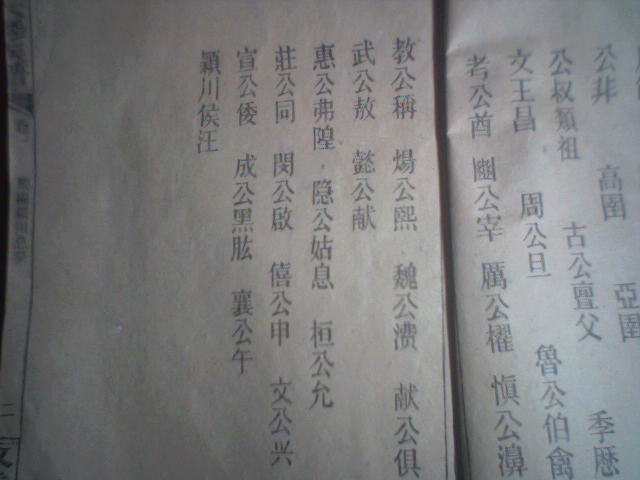 公非 高圉 亞圉 季歷
公叔𩔖祖 古公亶父
文王昌 周公旦 魯公伯禽
考公酋 幽公宰 厲公櫂 慎公濞
教公稱 煬公熙 魏公潰 献公俱
武公敖 懿公献
惠公弗隍 隐公姑息 桓公允
莊公同 閔公啟 僖公申 文公兴
宣公倭 成公黑肱 襄公午
潁川侯汪